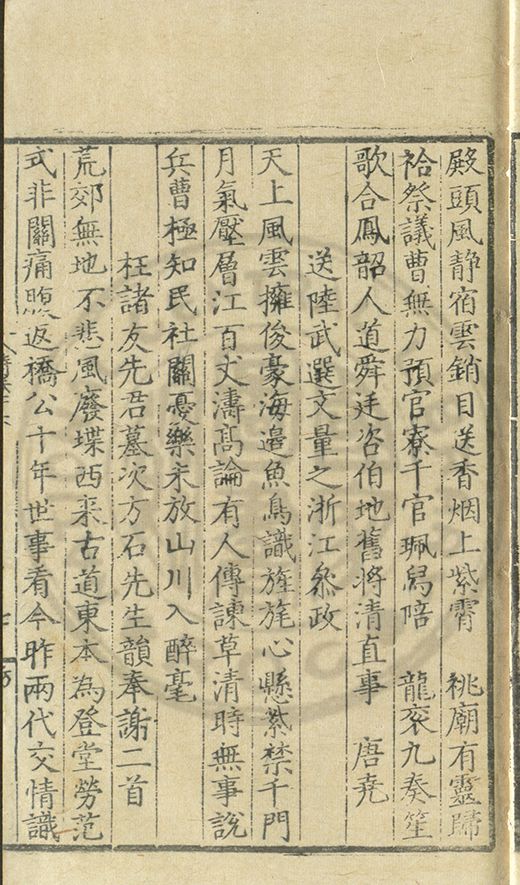 殿頭風静宿雲銷目送香烟上紫霄　祧廟有靈歸
祫祭議曹無力預官寮千官珮舃陪　龍衮九奏笙
歌合鳳韶人道舜廷咨伯地舊將清直事　唐堯
送陸武選文量之浙江叅政
天上風雲擁俊豪海邊魚鳥識旌旄心懸紫禁千門
月氣壓層江百丈濤髙論有人傳諫草清時無事說
兵曹極知民社關憂樂未放山川入醉毫
枉諸友先君墓次方石先生韻奉謝二首
荒郊無地不悲風廢堞西来古道東本為登堂勞范
式非關痛腹返橋公十年世事看今昨兩代交情識